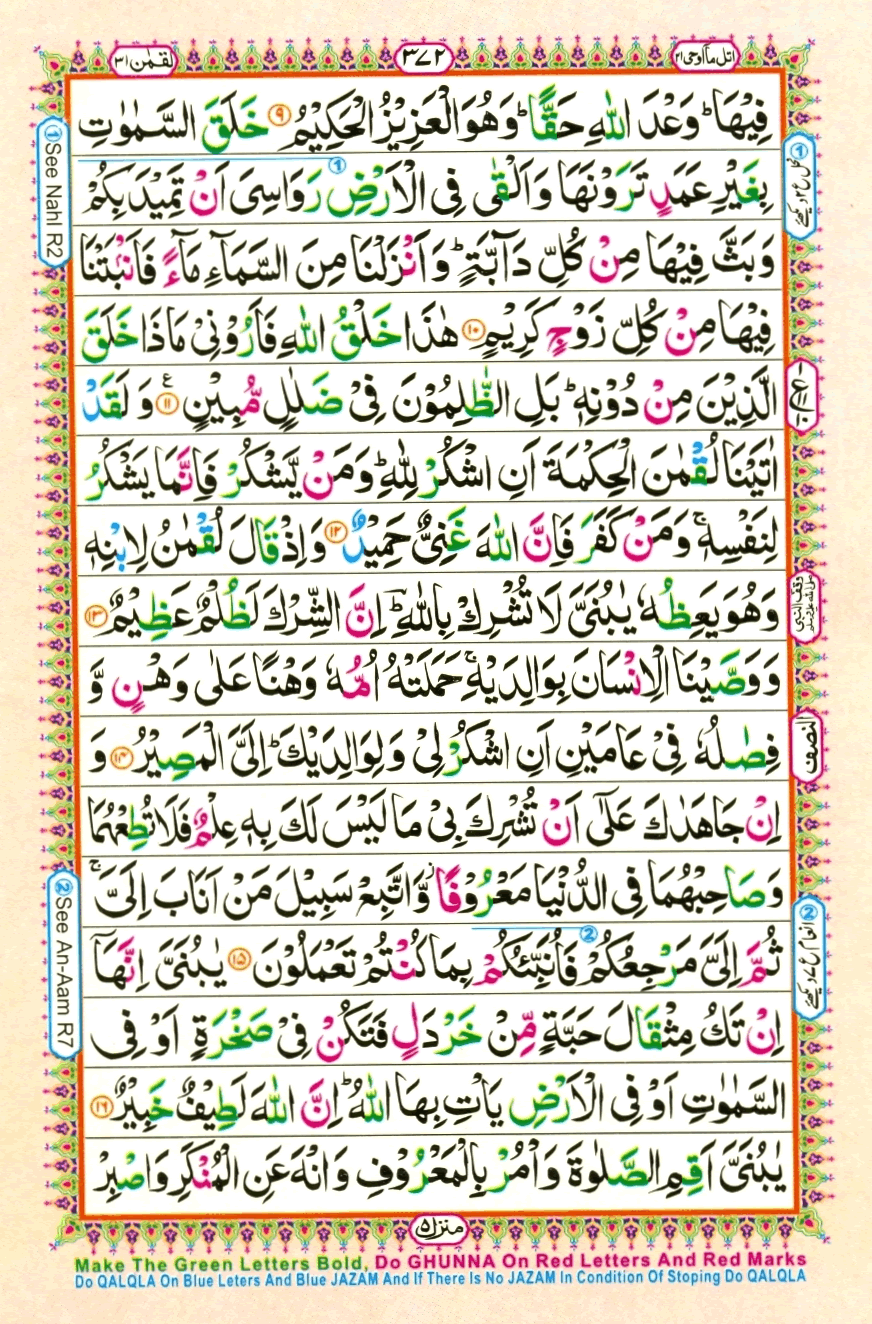 اتل مآ اوحی ۲۱
۳۷۲
لقمٰن ۳۱
فِيْهَا ؕ وَعْدَ اللّٰهِ حَقًّا ؕ وَهُوَ الْعَزِيْزُ الْحَكِيْمُ ۹ خَلَقَ السَّمٰوٰتِ
بِغَيْرِ عَمَدٍ تَرَوْنَهَا وَاَلْقٰى فِى الْاَرْضِ رَوَاسِىَ اَنْ تَمِيْدَ بِكُمْ
وَبَثَّ فِيْهَا مِنْ كُلِّ دَآبَّةٍ ؕ وَاَنْزَلْنَا مِنَ السَّمَآءِ مَآءً فَاَنْۢبَتْنَا
فِيْهَا مِنْ كُلِّ زَوْجٍ كَرِيْمٍ ۱۰ هٰذَا خَلْقُ اللّٰهِ فَاَرُوْنِىْ مَاذَا خَلَقَ
الَّذِيْنَ مِنْ دُوْنِهٖ ؕ بَلِ الظّٰلِمُوْنَ فِىْ ضَلٰلٍ مُّبِيْنٍ ۱۱ ع وَلَقَدْ
اٰتَيْنَا لُقْمٰنَ الْحِكْمَةَ اَنِ اشْكُرْ لِلّٰهِ ؕ وَمَنْ يَّشْكُرْ فَاِنَّمَا يَشْكُرُ
لِنَفْسِهٖ ۚ وَمَنْ كَفَرَ فَاِنَّ اللّٰهَ غَنِىٌّ حَمِيْدٌ ۱۲ وَاِذْ قَالَ لُقْمٰنُ لِابْنِهٖ
وَهُوَ يَعِظُهٗ يٰبُنَىَّ لَا تُشْرِكْ بِاللّٰهِ ؕ اِنَّ الشِّرْكَ لَظُلْمٌ عَظِيْمٌ ۱۳
وَوَصَّيْنَا الْاِنْسَانَ بِوَالِدَيْهِ ۚ حَمَلَتْهُ اُمُّهٗ وَهْنًا عَلٰى وَهْنٍ وَّ
فِصٰلُهٗ فِىْ عَامَيْنِ اَنِ اشْكُرْ لِىْ وَلِوَالِدَيْكَ ؕ اِلَىَّ الْمَصِيْرُ ۱۴ وَ
اِنْ جَاهَدٰكَ عَلٰٓى اَنْ تُشْرِكَ بِىْ مَا لَيْسَ لَكَ بِهٖ عِلْمٌ فَلَا تُطِعْهُمَا
وَصَاحِبْهُمَا فِى الدُّنْيَا مَعْرُوْفًا ؗ وَّاتَّبِعْ سَبِيْلَ مَنْ اَنَابَ اِلَىَّ ۚ
ثُمَّ اِلَىَّ مَرْجِعُكُمْ فَاُنَبِّئُكُمْ بِمَا كُنْتُمْ تَعْمَلُوْنَ ۱۵ يٰبُنَىَّ اِنَّهَاۤ
اِنْ تَكُ مِثْقَالَ حَبَّةٍ مِّنْ خَرْدَلٍ فَتَكُنْ فِىْ صَخْرَةٍ اَوْ فِى
السَّمٰوٰتِ اَوْ فِى الْاَرْضِ يَاْتِ بِهَا اللّٰهُ ؕ اِنَّ اللّٰهَ لَطِيْفٌ خَبِيْرٌ ۱۶
يٰبُنَىَّ اَقِمِ الصَّلٰوةَ وَاْمُرْ بِالْمَعْرُوْفِ وَانْهَ عَنِ الْمُنْكَرِ وَاصْبِرْ
النصف
① See Nahl R2
② See An-Aam R7
منزل ۵
Make The Green Letters Bold, Do GHUNNA On Red Letters And Red Marks
Do QALQLA On Blue Leters And Blue JAZAM And If There Is No JAZAM In Condition Of Stoping Do QALQLA